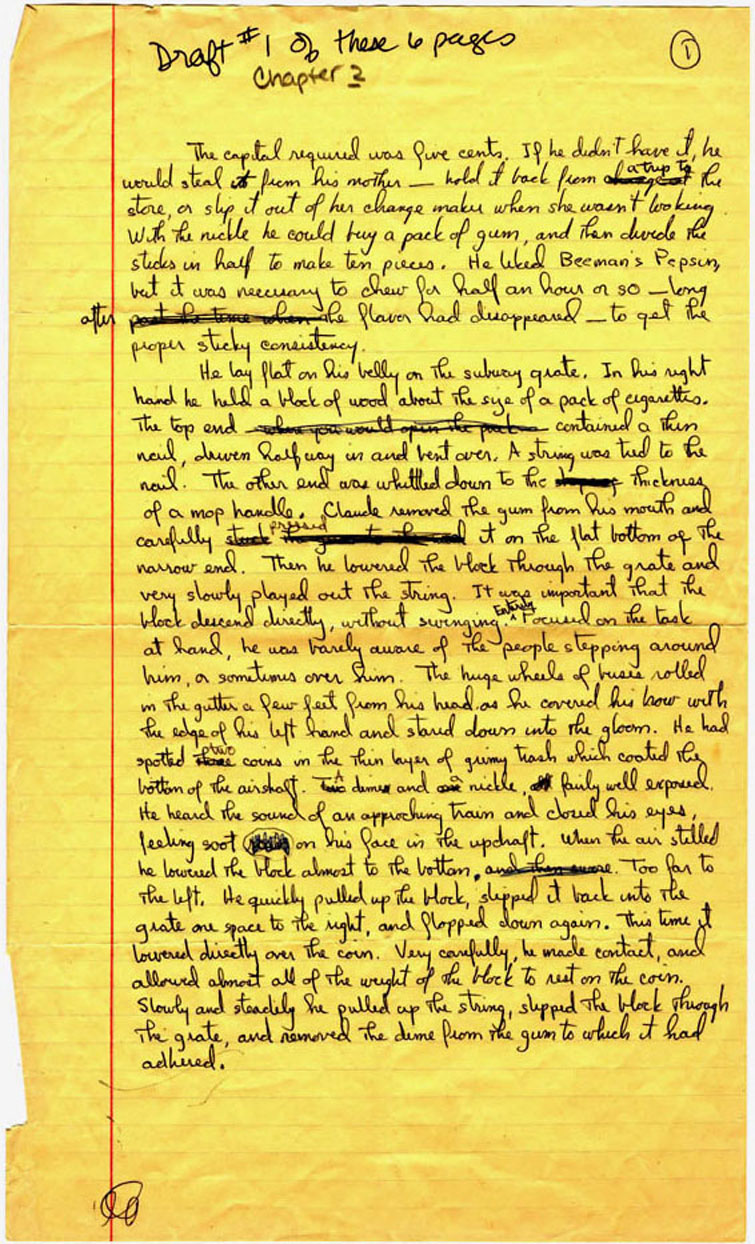 Draft #1 of these 6 pages
1
Chapter 2
The capital required was five cents. If he didn't have it, he
would steal it from his mother — hold it back from a trip to the
store, or slip it out of her change maker when she wasn't looking.
With the nickle he could buy a pack of gum, and then divide the
sticks in half to make ten pieces. He liked Beeman's Pepsin,
but it was necessary to chew for half an hour or so — long
after past the time when the flavor had disappeared — to get the
proper sticky consistency.
He lay flat on his belly on the subway grate. In his right
hand he held a block of wood about the size of a pack of cigarettes.
The top end where you would open the pack contained a thin
nail, driven halfway in and bent over. A string was tied to the
nail. The other end was whittled down to the thickness
of a mop handle. Claude removed the gum from his mouth and
carefully stuck pressed it on the flat bottom of the
narrow end. Then he lowered the block through the grate and
very slowly played out the string. It was important that the
block descend directly, without swinging. Entirely Focused on the task
at hand, he was barely aware of the people stepping around
him, or sometimes over him. The huge wheels of buses rolled
in the gutter a few feet from his head as he covered his brow with
the edge of his left hand and stared down into the gloom. He had
spotted three two coins in the thin layer of grimy trash which coated the
bottom of the airshaft. Two A dime and one a nickle, fairly well exposed.
He heard the sound of an approching train and closed his eyes,
feeling soot on his face in the updraft. When the air stilled
he lowered the block almost to the bottom. Too far to
the left. He quickly pulled up the block, slipped it back into the
grate one space to the right, and flopped down again. This time it
lowered directly over the coin. Very carefully, he made contact, and
allowed almost all of the weight of the block to rest on the coin.
Slowly and steadily he pulled up the string, slipped the block through
the grate, and removed the dime from the gum to which it had
adhered.